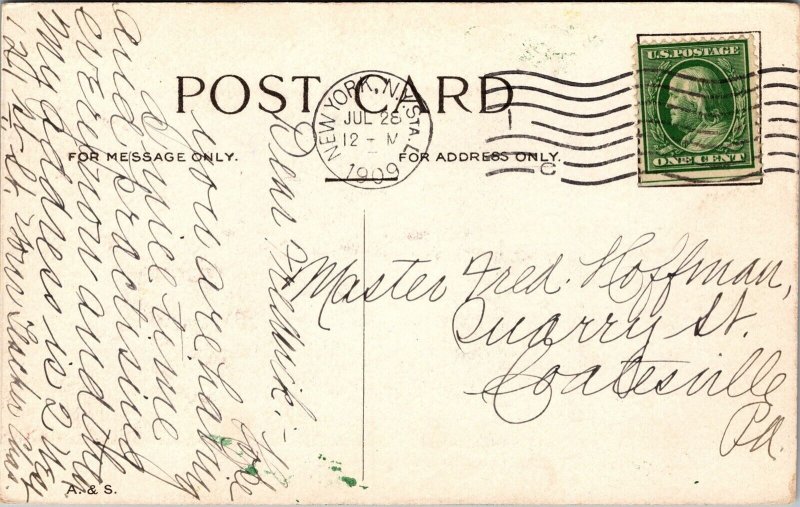 POST CARD
FOR MESSAGE ONLY.
FOR ADDRESS ONLY.
NEW YORK, N.Y. STA. L
JUL 28
12 - M
1909
C
U.S. POSTAGE
ONE CENT
Dear :- Hope
you are having
a nice time
and practising
every now and then
My address is 2 W
121 St. Your Teacher Chas.
Master Fred. Hoffman,
Quarry St.
Coatesville
Pa.
A. & S.